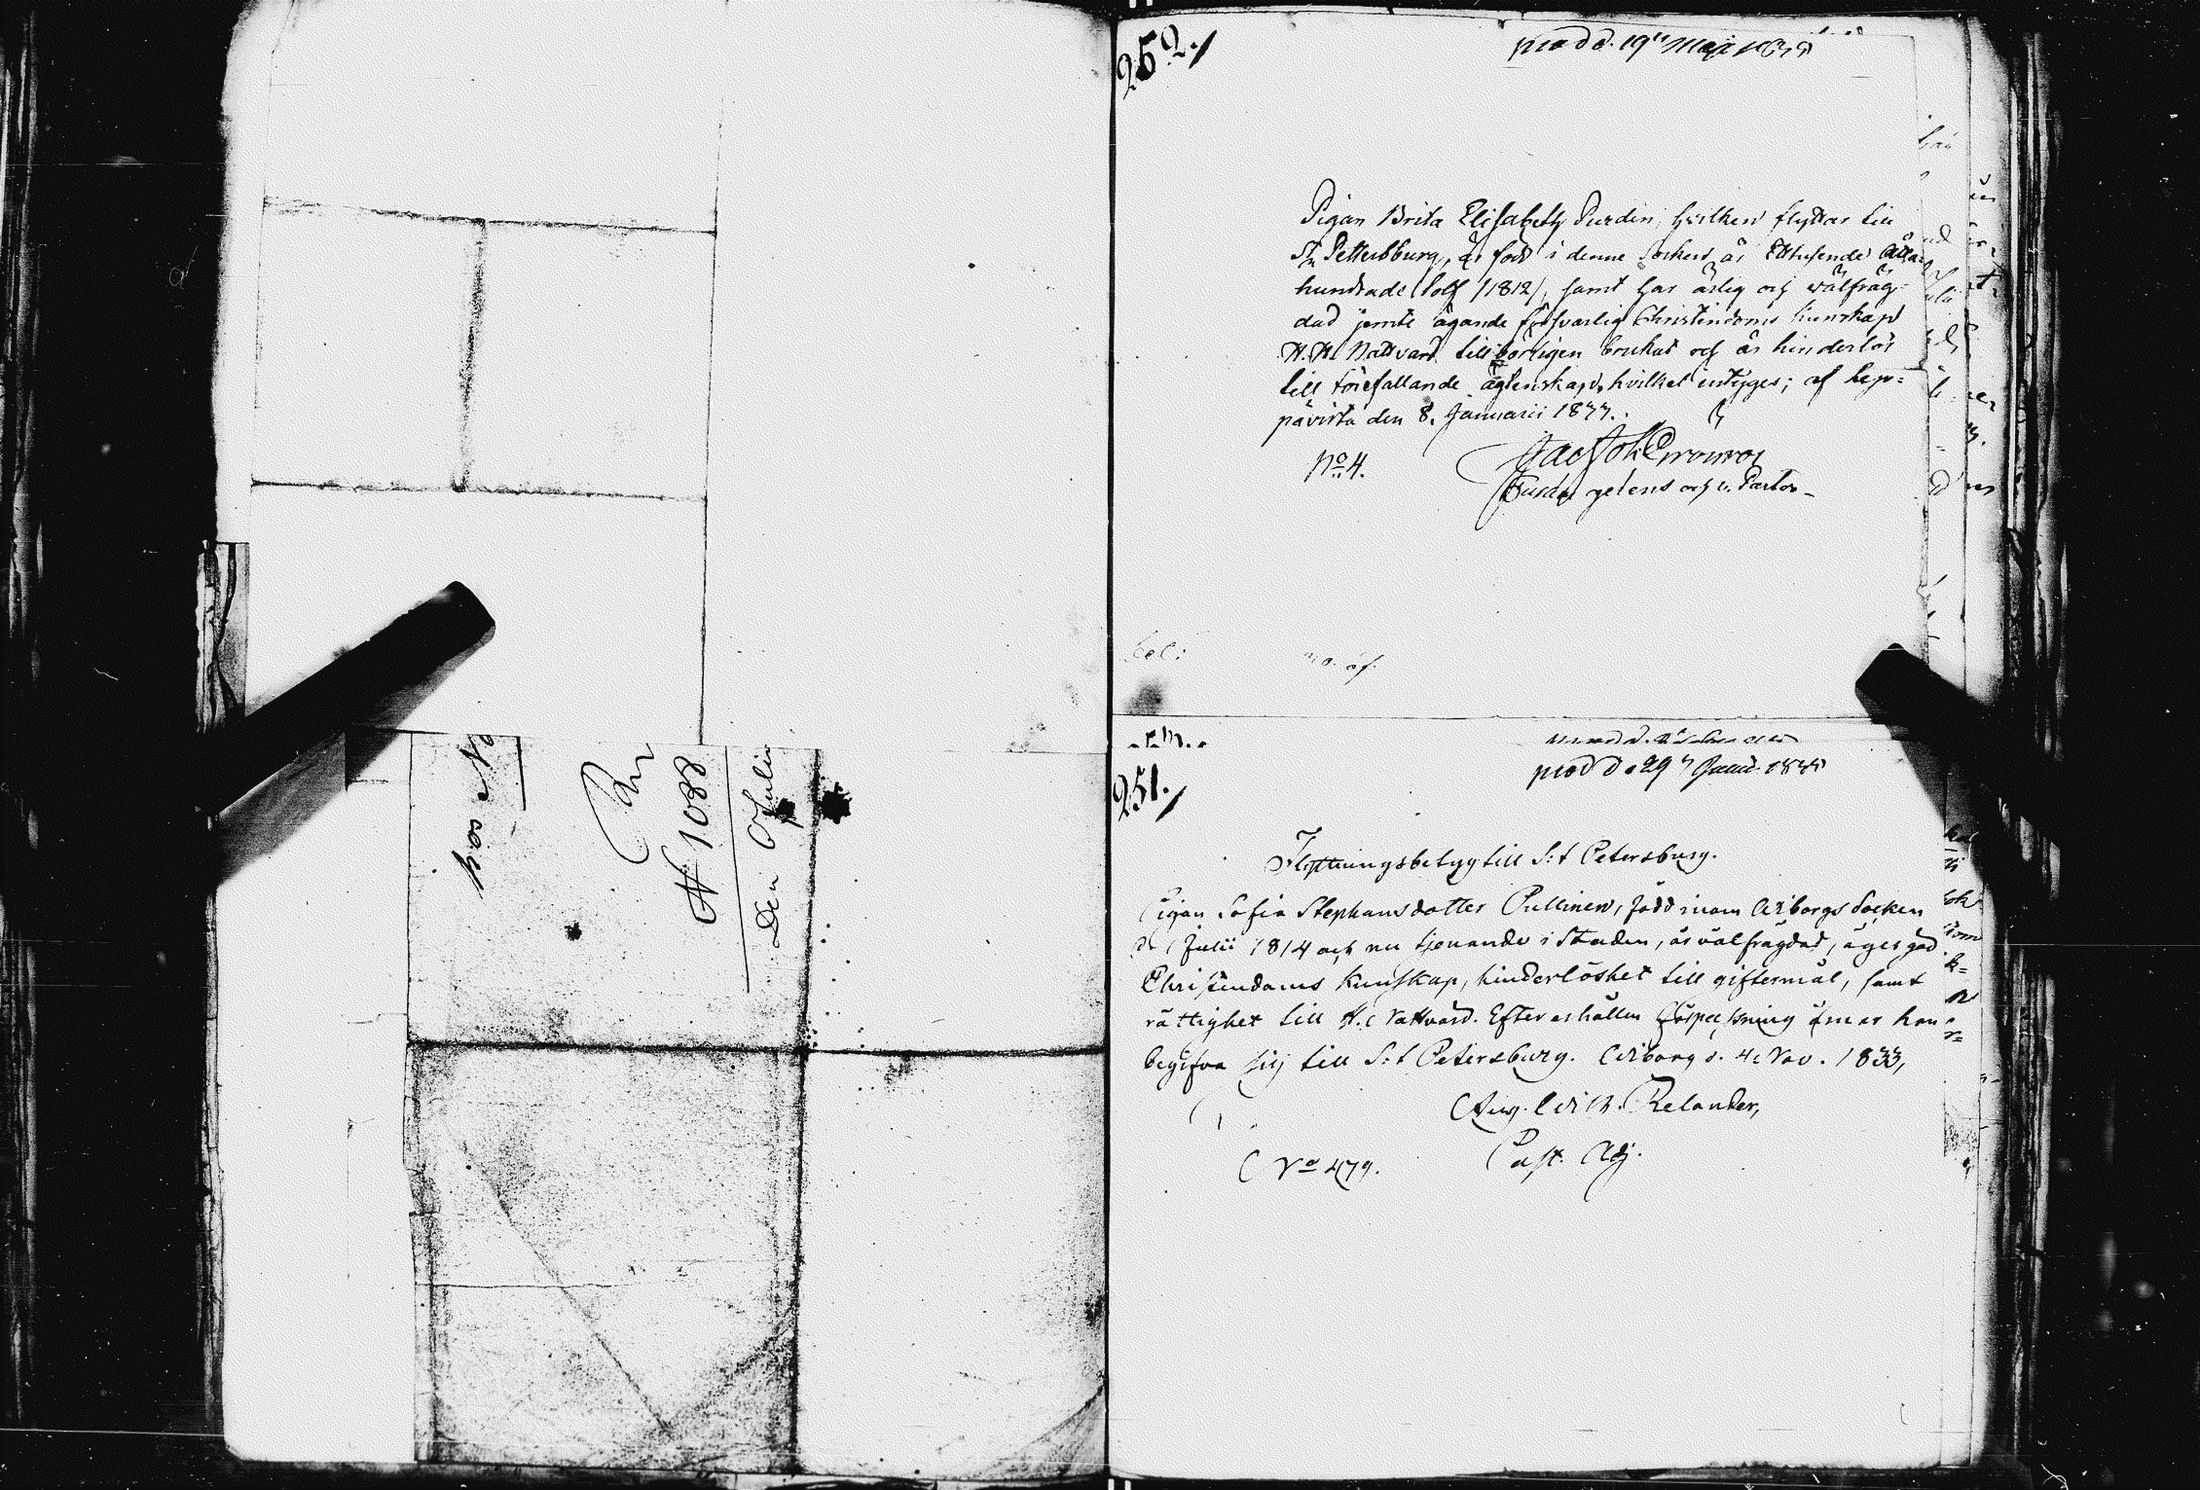 hos
N 1088
Den Julii
252.
prod d. 19 Maji
Pigan Brita Elisabeth Purdin, hvilken flyttar till
St. Pettersburg, är född i denne Socken år Ettusende Åtta
hundrade Tolf /1812/, samt har ärlig och välfräg-
dad jemte ägande försvarlig Christendoms kunskap
H. H. Nattvard tillbörligen brukat och är hinderlös
till förefallande ägtenskap, hvilket intyges; af Lep-
pävirta den 8. Januarii 1833.
No 4.
v. Pastor
251.
prod d. 29 Junii
Flyttningsbetyg till S:t Petersburg.
Pigan Sofia Stephansdotter Pullinen, född inom Wiborgs Socken
d. Julii 1814 och nu tjenande i Staden, är välfrägdad, äger god
Christendoms kunskap, hinderlöshet till giftermål, samt
rättighet till H. Nattvard. Efter erhållen förpassning ämnar hon
begifva sig till S:t Petersburg. Wiborg d. 4 Nov. 1833,
Aug. Wilh. Relander,
Past. Adj.
No 479.